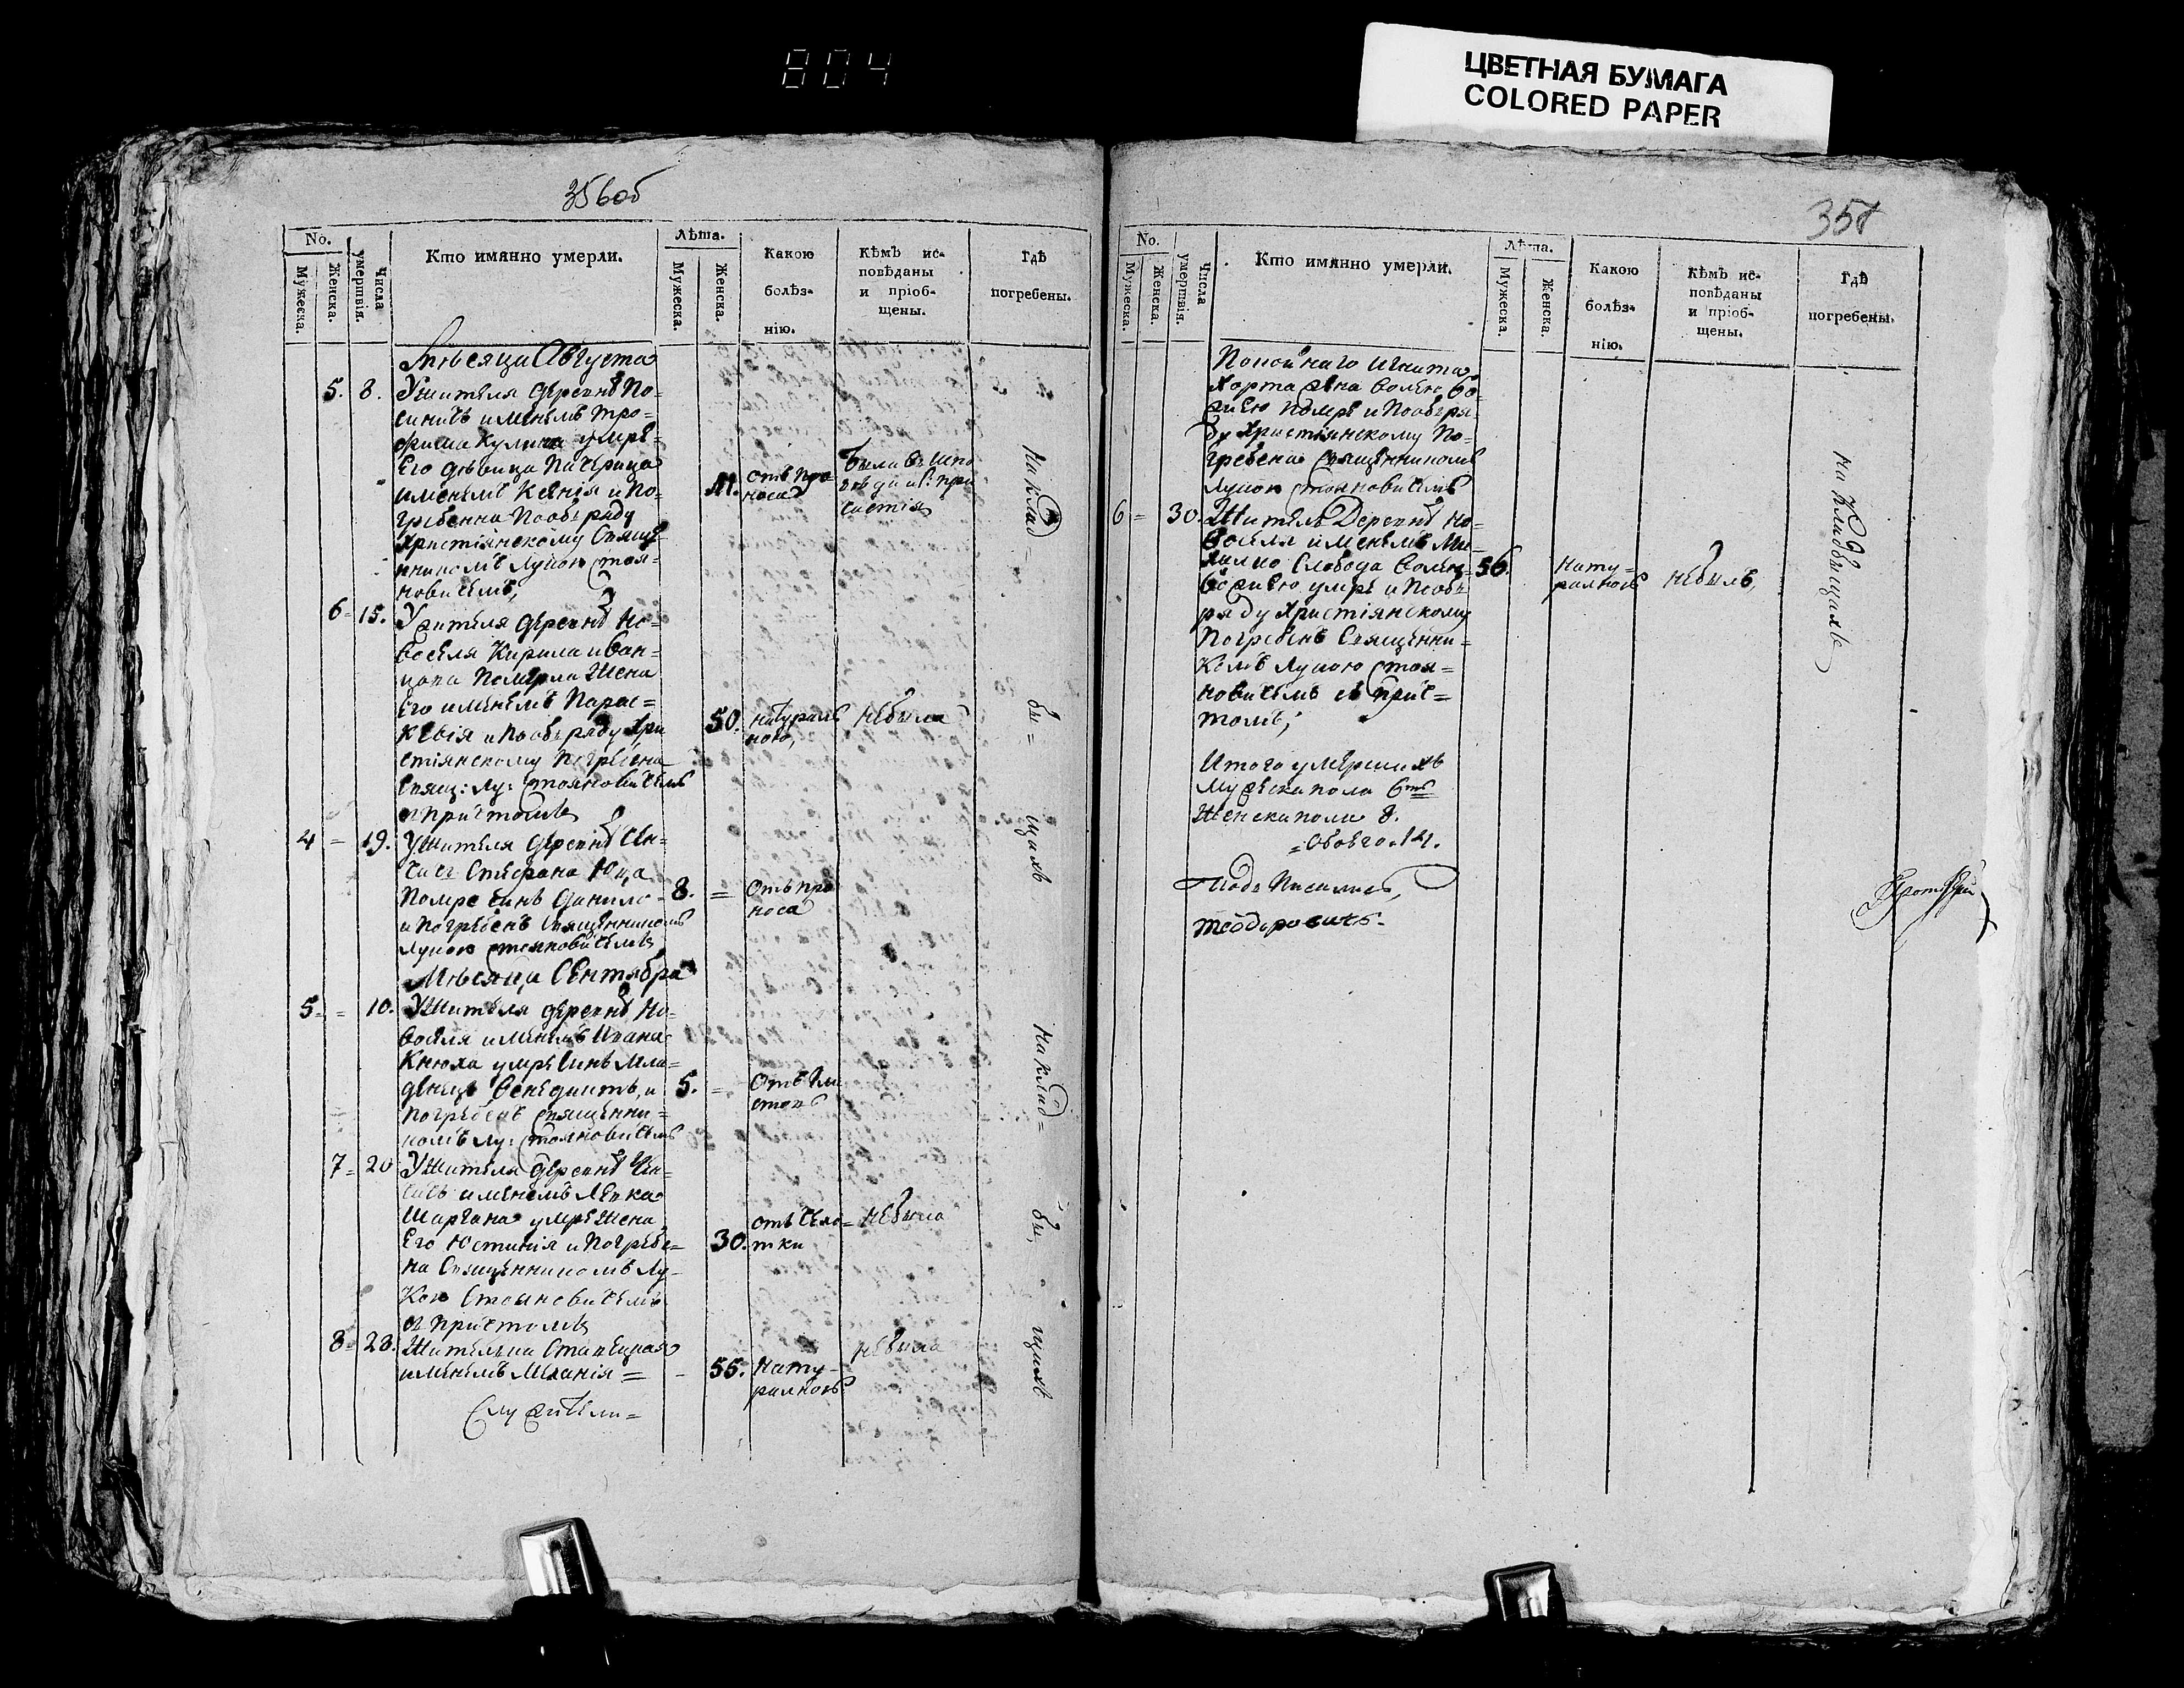 804
ЦВЕТНАЯ БУМАГА
COLORED PAPER
356об
No.
Мужеска.
Женска.
Числа умертвія.
Кто имянно умерли.
Лѣта.
Мужеска.
Женска.
Какою болѣз-
нію.
кѣмъ ис-
повѣданы
и пріоб-
щены.
гдѣ
погребены.
Мѣсяца Августа
5. 8. Ужителя деревнѣ
именемъ Тро-
фима Кулина умре
Его девица
именемъ Ксенія и по-
гребенна пообъряду
Христіянскому Свяще-
нникомъ Лукою Стоя-
новичемъ,
11. отъ про-
носа
была въ испо
вѣди и С: при
частія
На клад=
6= 15. Ужителя деревнѣ Но-
воселя Кирила Иван-
цова Померла Жена
Его именемъ Парас=
кевія и пообъряду Хри
стіянскому погребена
Свящ: Лу: Стояновичемъ
съ причтомъ
50. натураль
ною,
небыла
би=
4 = 19. Ужителя деревнѣ
Стефана Юца
Помре синъ Данило
и погребенъ Священникомъ
Лукою Стояновичемъ
8. = отъ про
носа
щахъ
Мѣсяца Сентября
5= = 10. Ужителя деревнѣ Но-
воселя именемъ Ивана
Кнюха умре Синъ Мла-
денецъ Венедиктъ, и
погребенъ Священни=
комъ Лу: Стояновичемъ
5. =
На клад=
7= 20 Ужителя деревнѣ
именемъ Левка
Шаргана умре Жена
Его Юстинія и погребе=
на Священникомъ Лу-
кою Стояновичемъ
съ причтомъ
30. отъ
тки
небыла
би,
8= 28. Жителька
именемъ Меланія =
- 55. Нату-
ралной
небыла
щахъ
358
No.
Мужеска.
Женска.
Числа умертвія.
Кто имянно умерли.
Лѣта.
Мужеска.
Женска.
Какою
болѣз-
нію.
кѣмъ ис-
повѣданы
и пріоб-
щены.
гдѣ
погребены.
Покойнаго Никита
Хорта Жена Волею Бо-
жіею помре и пообъря-
ду Христіянскому По-
гребена Священникомъ
Лукою Стояновичемъ
6 = 30. Житель Деревнѣ Но-
воселя именемъ Ми-
хаило Слобода Волею
Божіею умре и пообъ
ряду Христіянскому
погребенъ Священни=
комъ Лукою Стоя=
новичемъ съ прич=
томъ;
56. Нату=
ралной
небылъ,
на кладбищахъ
Итого умершихъ
Мужеска пола 6ть
Женска пола 8.
=Обоего. 14.
Теодоровичъ.